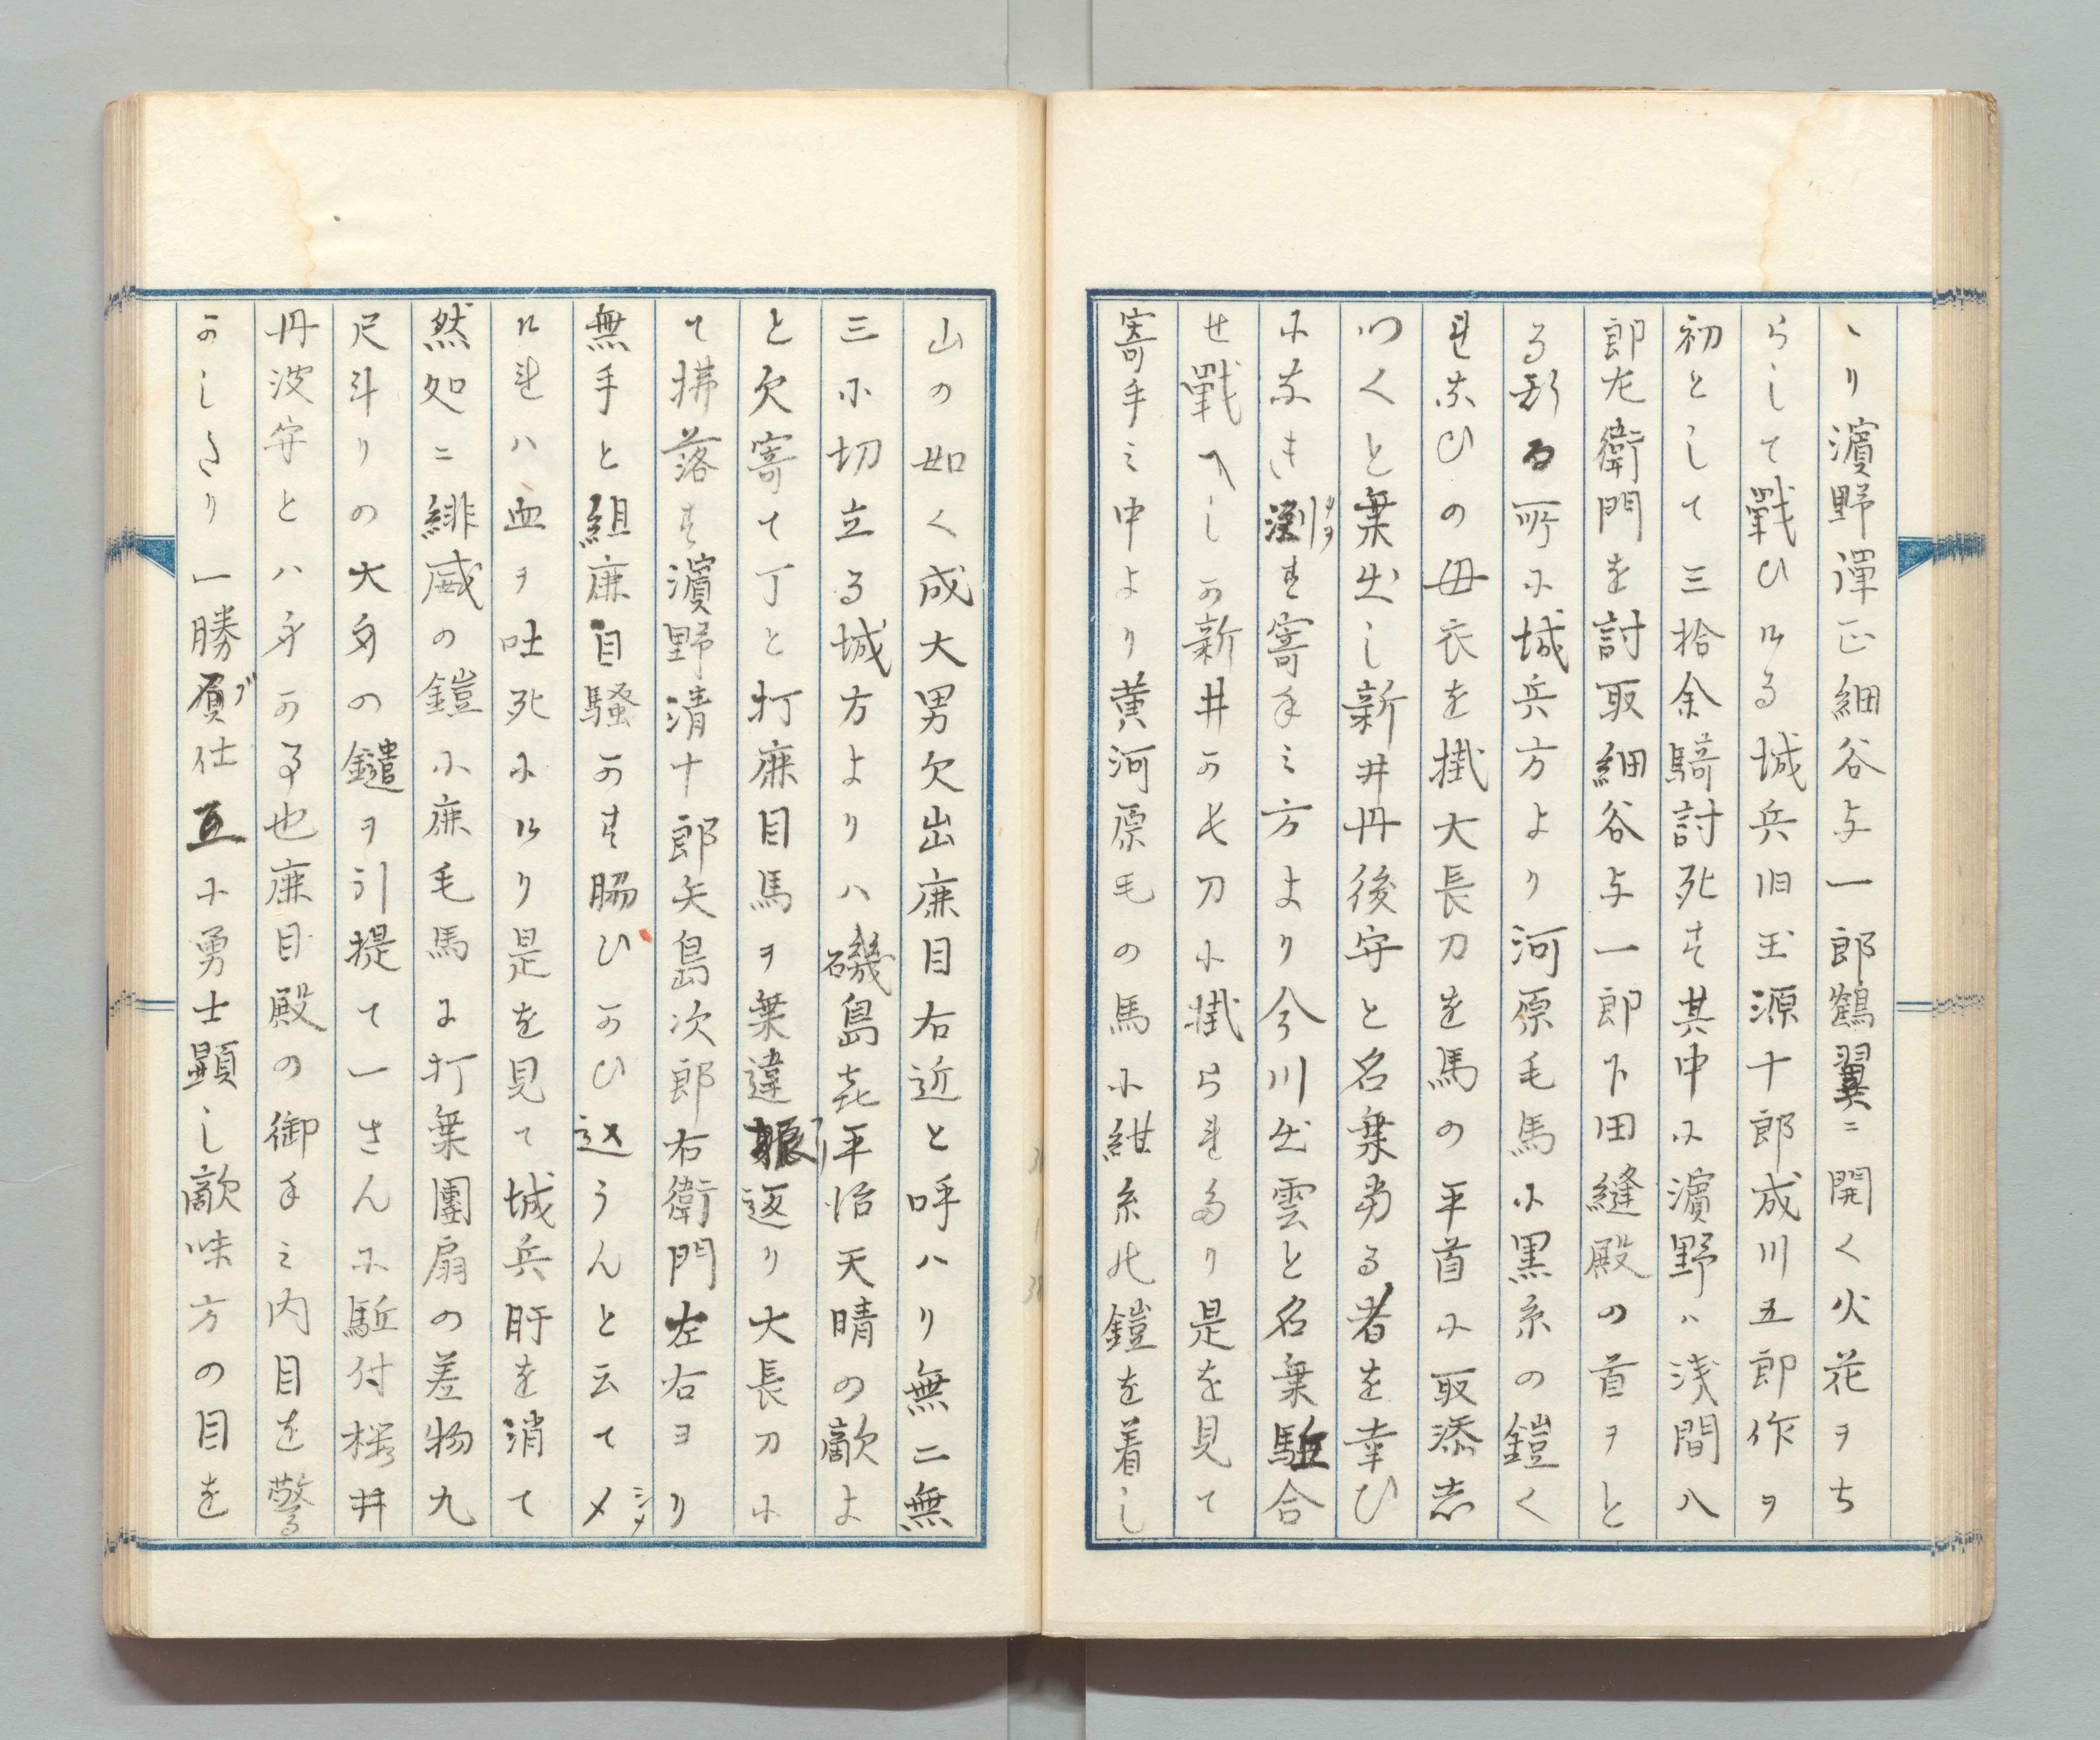 ゝり濱野彈正細谷与一郎鶴翼ニ開く火花ヲち
らして戰ひける城兵旧玉源十郎成川五郎作ヲ
初として三拾余騎討死す其中に濱野ハ浅間八
郎左衛門を討取細谷与一郎下田縫殿の首ヲと
る斯る所に城兵方より河原毛馬に黒糸の鎧く
れなひの母衣を掛大長刀を馬の平首に取添志
つくと乗出し新井丹後守と名乗勇る者を幸ひ
になき渕す寄手之方より今川出雲と名乗駈合
せ戰へしか新井か長刀に掛られたり是を見て
寄手之中より黄河原毛の馬に紺糸の鎧を着し
山の如く成大男欠出廉目右近と呼ハり無二無
三に切立る城方よりハ磯島㐂平治天晴の敵よ
と欠寄て丁と打廉目馬ヲ乗違振返り大長刀に
て拂落す濱野清十郎矢島次郎右衛門左右ヨり
無手と組廉目騒かす脇ひかひ込うんと云て〆
シメ
けれハ血ヲ吐死にけり是を見て城兵肝を消て
然処ニ緋威の鎧に鹿毛馬に打乗團扇の差物九
尺斗りの大身の鑓ヲ引提て一さんに駈付桜井
丹波守とハ身か事也廉目殿の御手之内目を驚
かしたり一勝負仕互に勇士顕し敵味方の目を